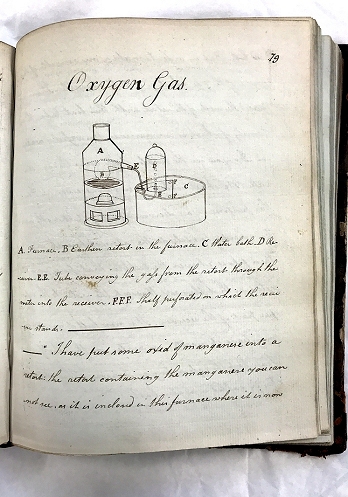 79
Oxygen Gas.
A
B
E
D
C
E
F
F
A. Furnace. B Earthen retort in the furnace. C Water bath. D Re-
ceiver. E.E. Tube conveying the gass from the retort through the
water into the receiver. F.F.F. Shelf perforated on which the recei
ver stands.
" I have put some oxid of manganese into a
retort: the retort containing the manganese you can
not see, as it is inclosed in this furnace where it is now